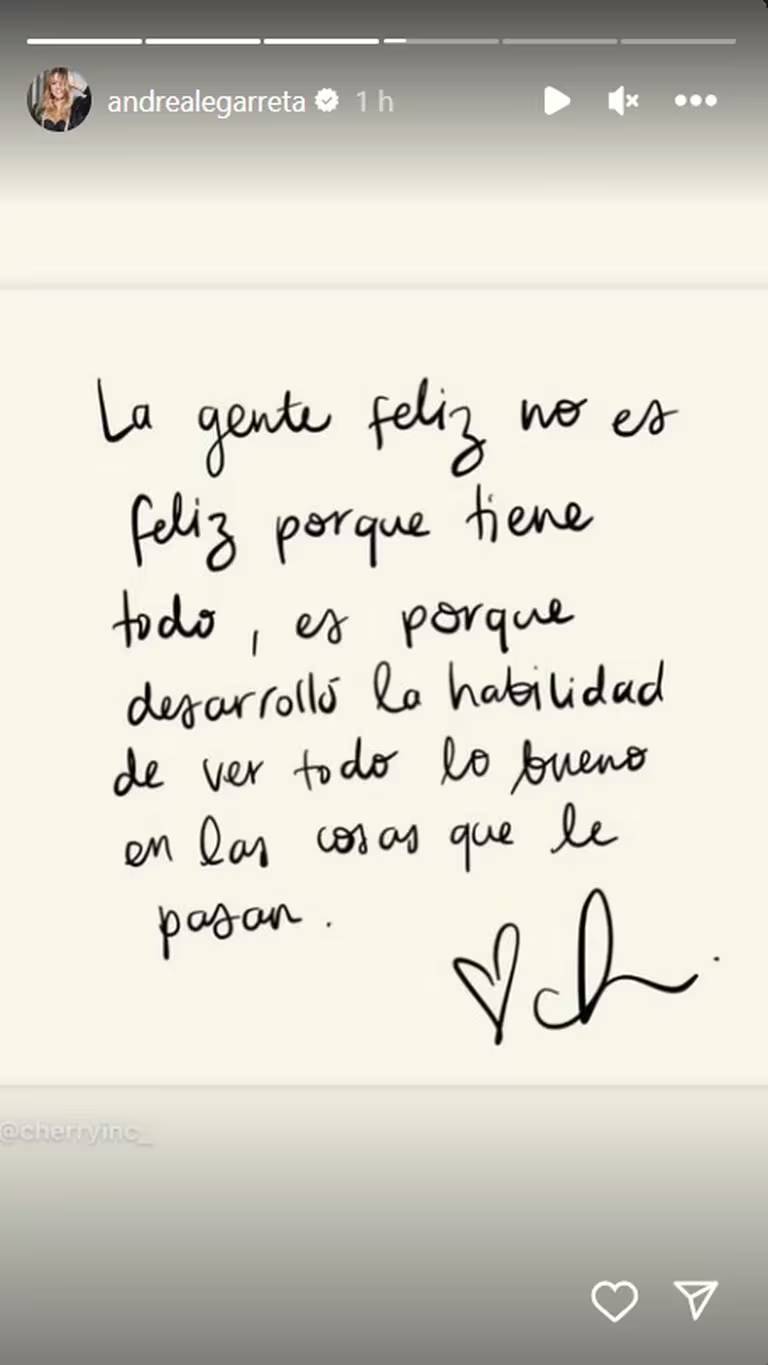 andrealegarreta 1 h
La gente feliz no es
feliz porque tiene
todo, es porque
desarrolló la habilidad
de ver todo lo bueno
en las cosas que le
pasan.
ch.
@cherryinc_